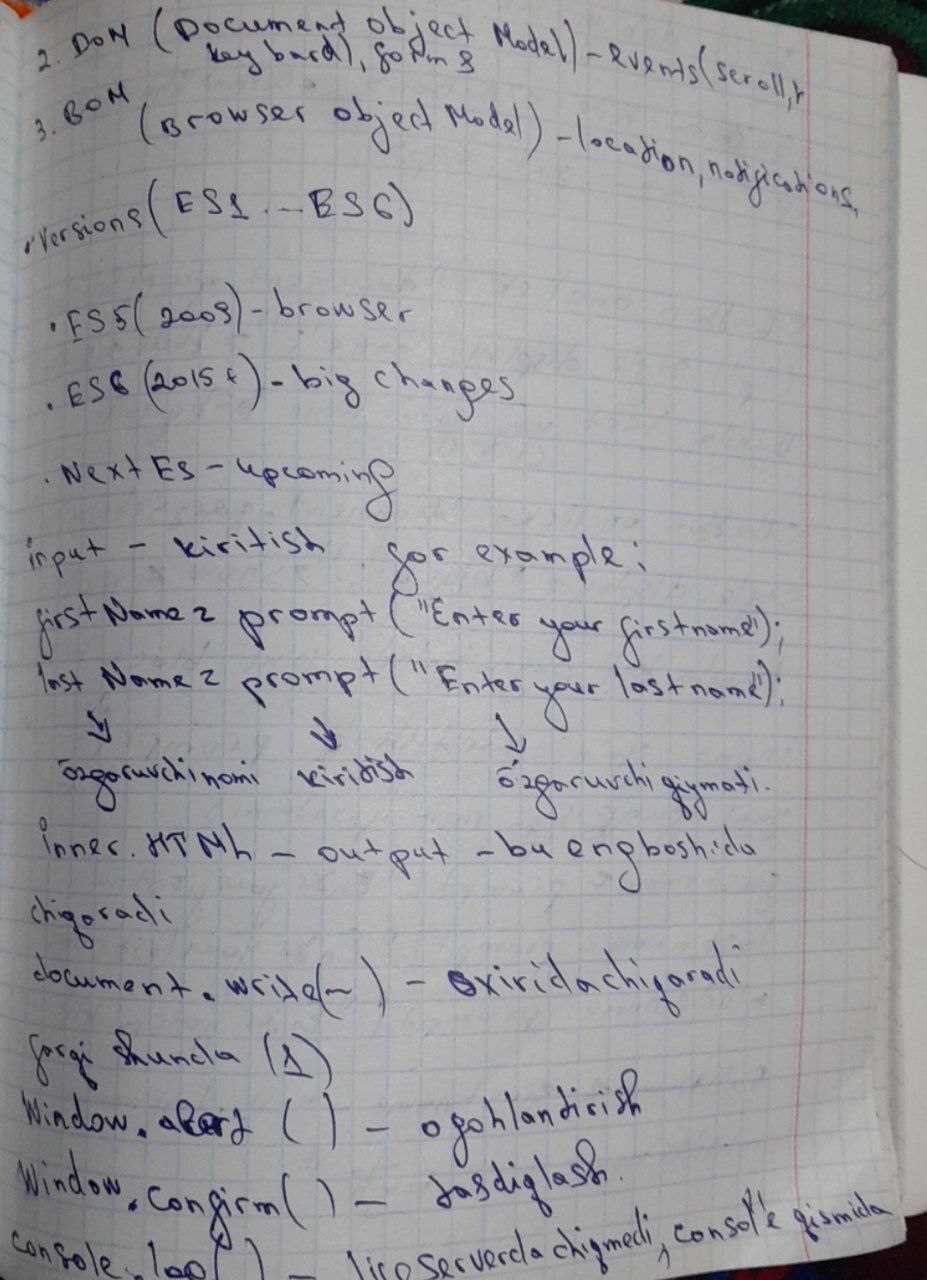 2. DOM (Document object Model) - events(scroll,
keyboard), forms
3. BOM (Browser object Model) - location, notifications,
• Versions (ES1 ... ES6)
• ES5 (2009) - browser
• ES6 (2015+) - big changes
• Next ES - upcoming
input - kiritish for example:
firstName = prompt ("Enter your firstname");
lastName = prompt ("Enter your lastname");
o'zgaruvchi nomi kiritish o'zgaruvchi qiymati.
inner.HTML - output - bu eng boshida
chiqaradi
document.write(~) - oxirida chiqaradi
farqi shunda (1)
Window.alert ( ) - ogohlantirish
Window.confirm ( ) - tasdiqlash.
console.log ( ) - liveserverda chiqmedi, console qismida